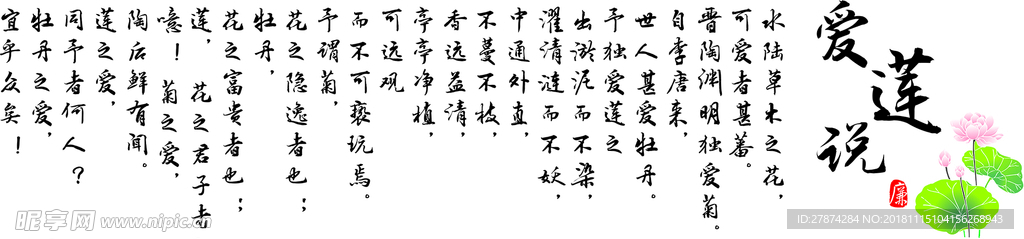 爱莲说
水陆草木之花，
可爱者甚蕃。
晋陶渊明独爱菊。
自李唐来，
世人甚爱牡丹。
予独爱莲之
出淤泥而不染，
濯清涟而不妖，
中通外直，
不蔓不枝，
香远益清，
亭亭净植，
可远观
而不可亵玩焉。
予谓菊，
花之隐逸者也；
牡丹，
花之富贵者也；
莲，花之君子者
噫！菊之爱，
陶后鲜有闻。
莲之爱，
同予者何人？
牡丹之爱，
宜乎众矣！
廉
昵享网 www.nipic.cn
ID:27874284 NO:20181115104156268943